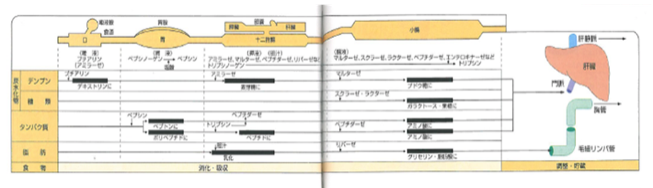 唾液腺
食道
口
胃腺
胃
膵臓
胆嚢
肝臓
十二指腸
小腸
肝静脈
肝臓
門脈
胸管
毛細リンパ管
(唾 液)
プチアリン
(アミラーゼ)
(胃 液)
ペプシノーゲン
ペプシン
塩酸
(膵液) (胆汁)
アミラーゼ、マルターゼ、ペプチダーゼ、リパーゼなど
トリプシノーゲン
(腸液)
マルターゼ、スクラーゼ、ラクターゼ、ペプチダーゼ、エンテロキナーゼなど
トリプシン
炭水化物
デンプン
プチアリン
デキストリンに
アミラーゼ
麦芽糖に
マルターゼ
ブドウ糖に
糖 類
スクラーゼ・ラクターゼ
ガラクトース・果糖に
タンパク質
ペプシン
ペプトンに
ポリペプチドに
トリプシン
ペプチダーゼ
ペプチドに
ペプチダーゼ
アミノ酸に
アミノ酸に
脂 肪
胆汁
乳化
リパーゼ
グリセリン・脂肪酸に
食 物
消化・吸収
調整・貯蔵